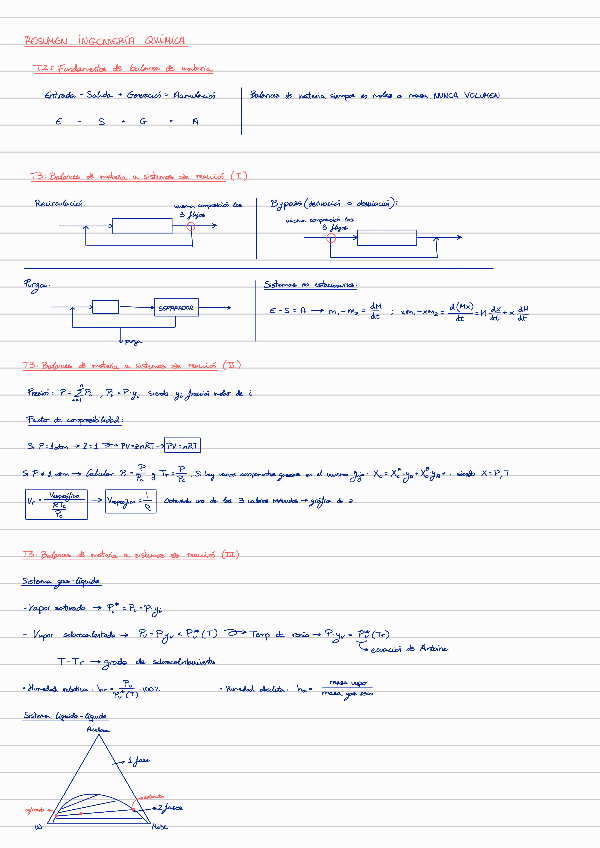 RESUMEN INGENIERÍA QUÍMICA
T2: Fundamentos de balance de materia
Entrada - Salida + Generación = Acumulación
Balances de materia siempre en moles o masa, NUNCA VOLUMEN
E - S + G = A
T3: Balances de materia a sistemas sin reacción (I)
Recirculación:
misma composición los
3 flujos
Bypass (derivación o desviación):
misma composición los
3 flujos
Purga:
SEPARADOR
purga
Sistemas no estacionarios:
E - S = A → m₁ - m₂ = dM/dt ; xm₁ - xm₂ = d(Mx)/dt = M dx/dt + x dM/dt
T3: Balances de materia a sistemas sin reacción (II)
Presión: P = Σ Pi , Pi = P·yi siendo yi fracción molar de i
Factor de compresibilidad:
Si P=1 atm → Z=1 → PV=znRT → PV=nRT
Si P ≠ 1 atm → Calcular Pr = P/Pc y Tr = T/Tc. Si hay varios componentes gaseosos en el sistema
siendo X = P, T
Vr = Vespecífico / (RTc/Pc) → Vespecífico = 1/ρ Obtenido uno de los 3 valores reducidos → gráfica de z
T3: Balances de materia a sistemas sin reacción (III)
Sistema gas-líquido
- Vapor saturado → Pi* = Pi = P·yi
- Vapor sobrecalentado → Pi = P·yv < Pv*(T) → Temp de rocío → P·yv = Pv*(Tr)
ecuación de Antoine
T - Tr → grado de sobrecalentamiento
• Humedad relativa: hr = Pv/Pv*(T) · 100%
• Humedad absoluta: ha = masa vapor / masa gas seco
Sistema líquido-líquido
Acetona
1 fase
extracto
refinado
2 fases
W
MIBC